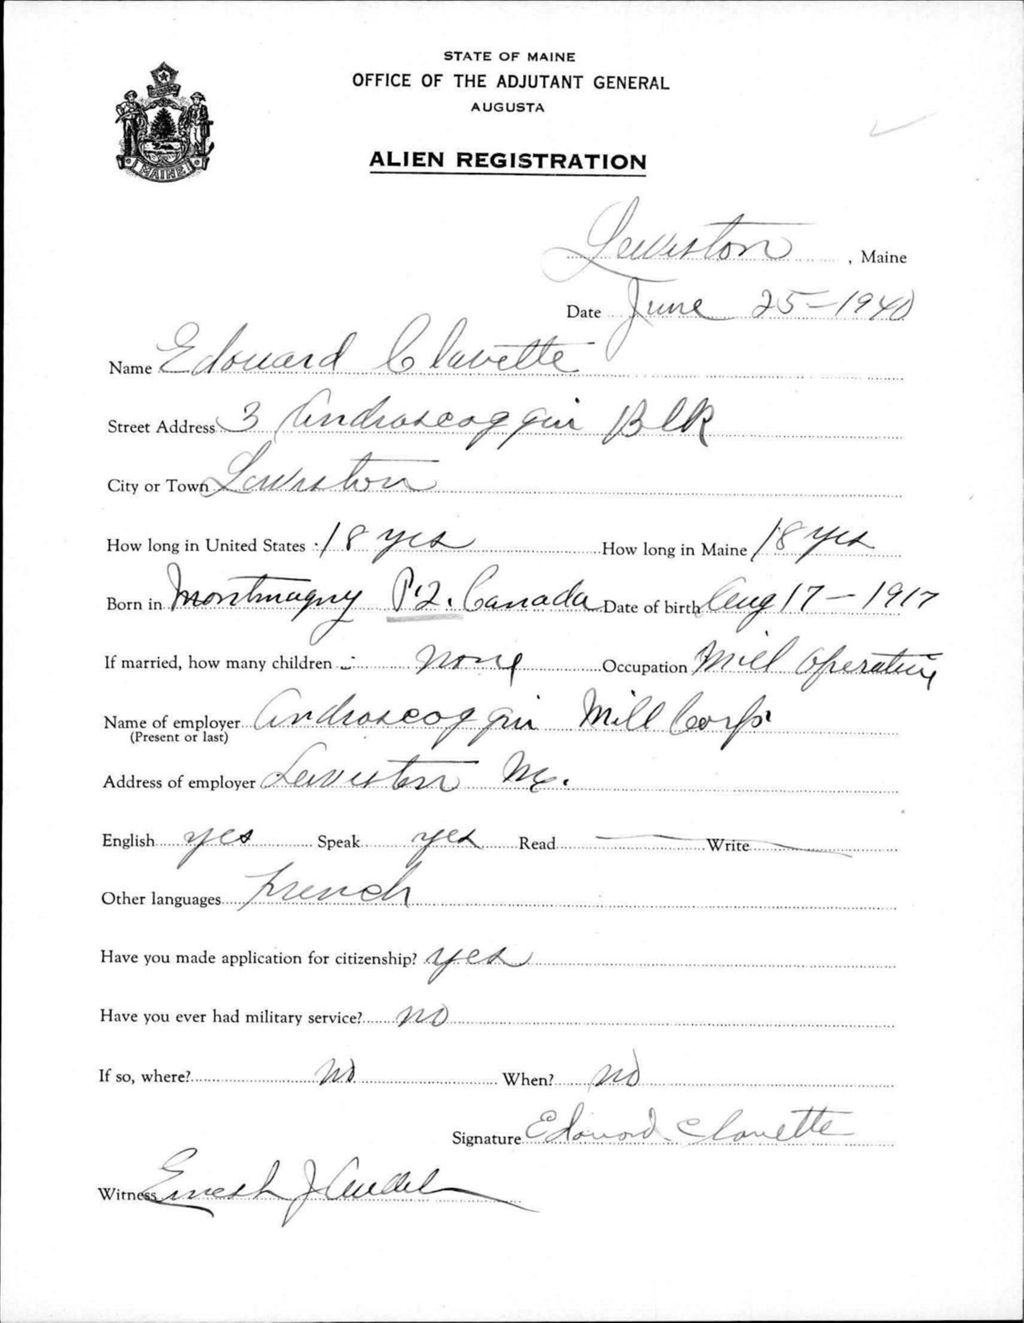 STATE OF MAINE
OFFICE OF THE ADJUTANT GENERAL
AUGUSTA
MAINE
ALIEN REGISTRATION
Lewiston, Maine
Date June 25-1940
Name Edouard Clavette
Street Address 3 Androscoggin Blk
City or Town Lewiston
How long in United States 18 yrs How long in Maine 18 yrs
Born in Montmagny P.Q. Canada Date of birth Aug 17-1917
If married, how many children none Occupation Mill Operative
Name of employer Androscoggin Mill Corp.
(Present or last)
Address of employer Lewiston Me.
English yes Speak yes Read — Write —
Other languages French
Have you made application for citizenship? yes
Have you ever had military service? no
If so, where? no When? no
Signature Edouard Clavette
Witness Ernest J